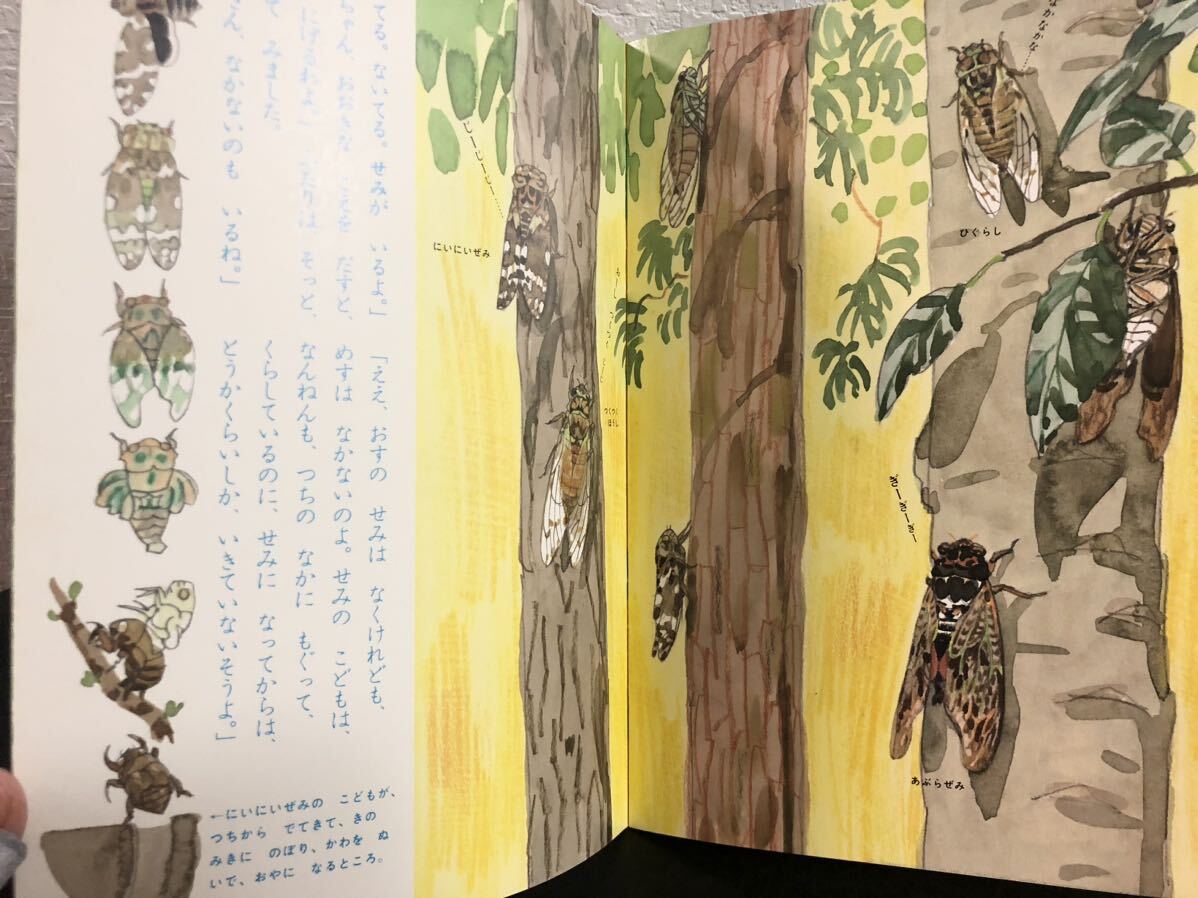 てる。ないてる。せみが いるよ。」
ちゃん、おおきな こえを だすと、
にげるわよ。」ふたりは そっと、
みました。
なかないのも いるね。」
「ええ、おすの せみは なくけれども、
めすは なかないのよ。せみの こどもは、
なんねんも、つちの なかに もぐって、
くらしているのに、せみに なってからは、
とうかくらいしか、いきていないそうよ。」
←にいにいぜみの こどもが、
つちから でてきて、きの
みきに のぼり、かわを ぬ
いで、おやに なるところ。
じーじーじー……
にいにいぜみ
つくつく
ぼうし
かなかなかな…
ひぐらし
ぎーぎーぎー
あぶらぜみ